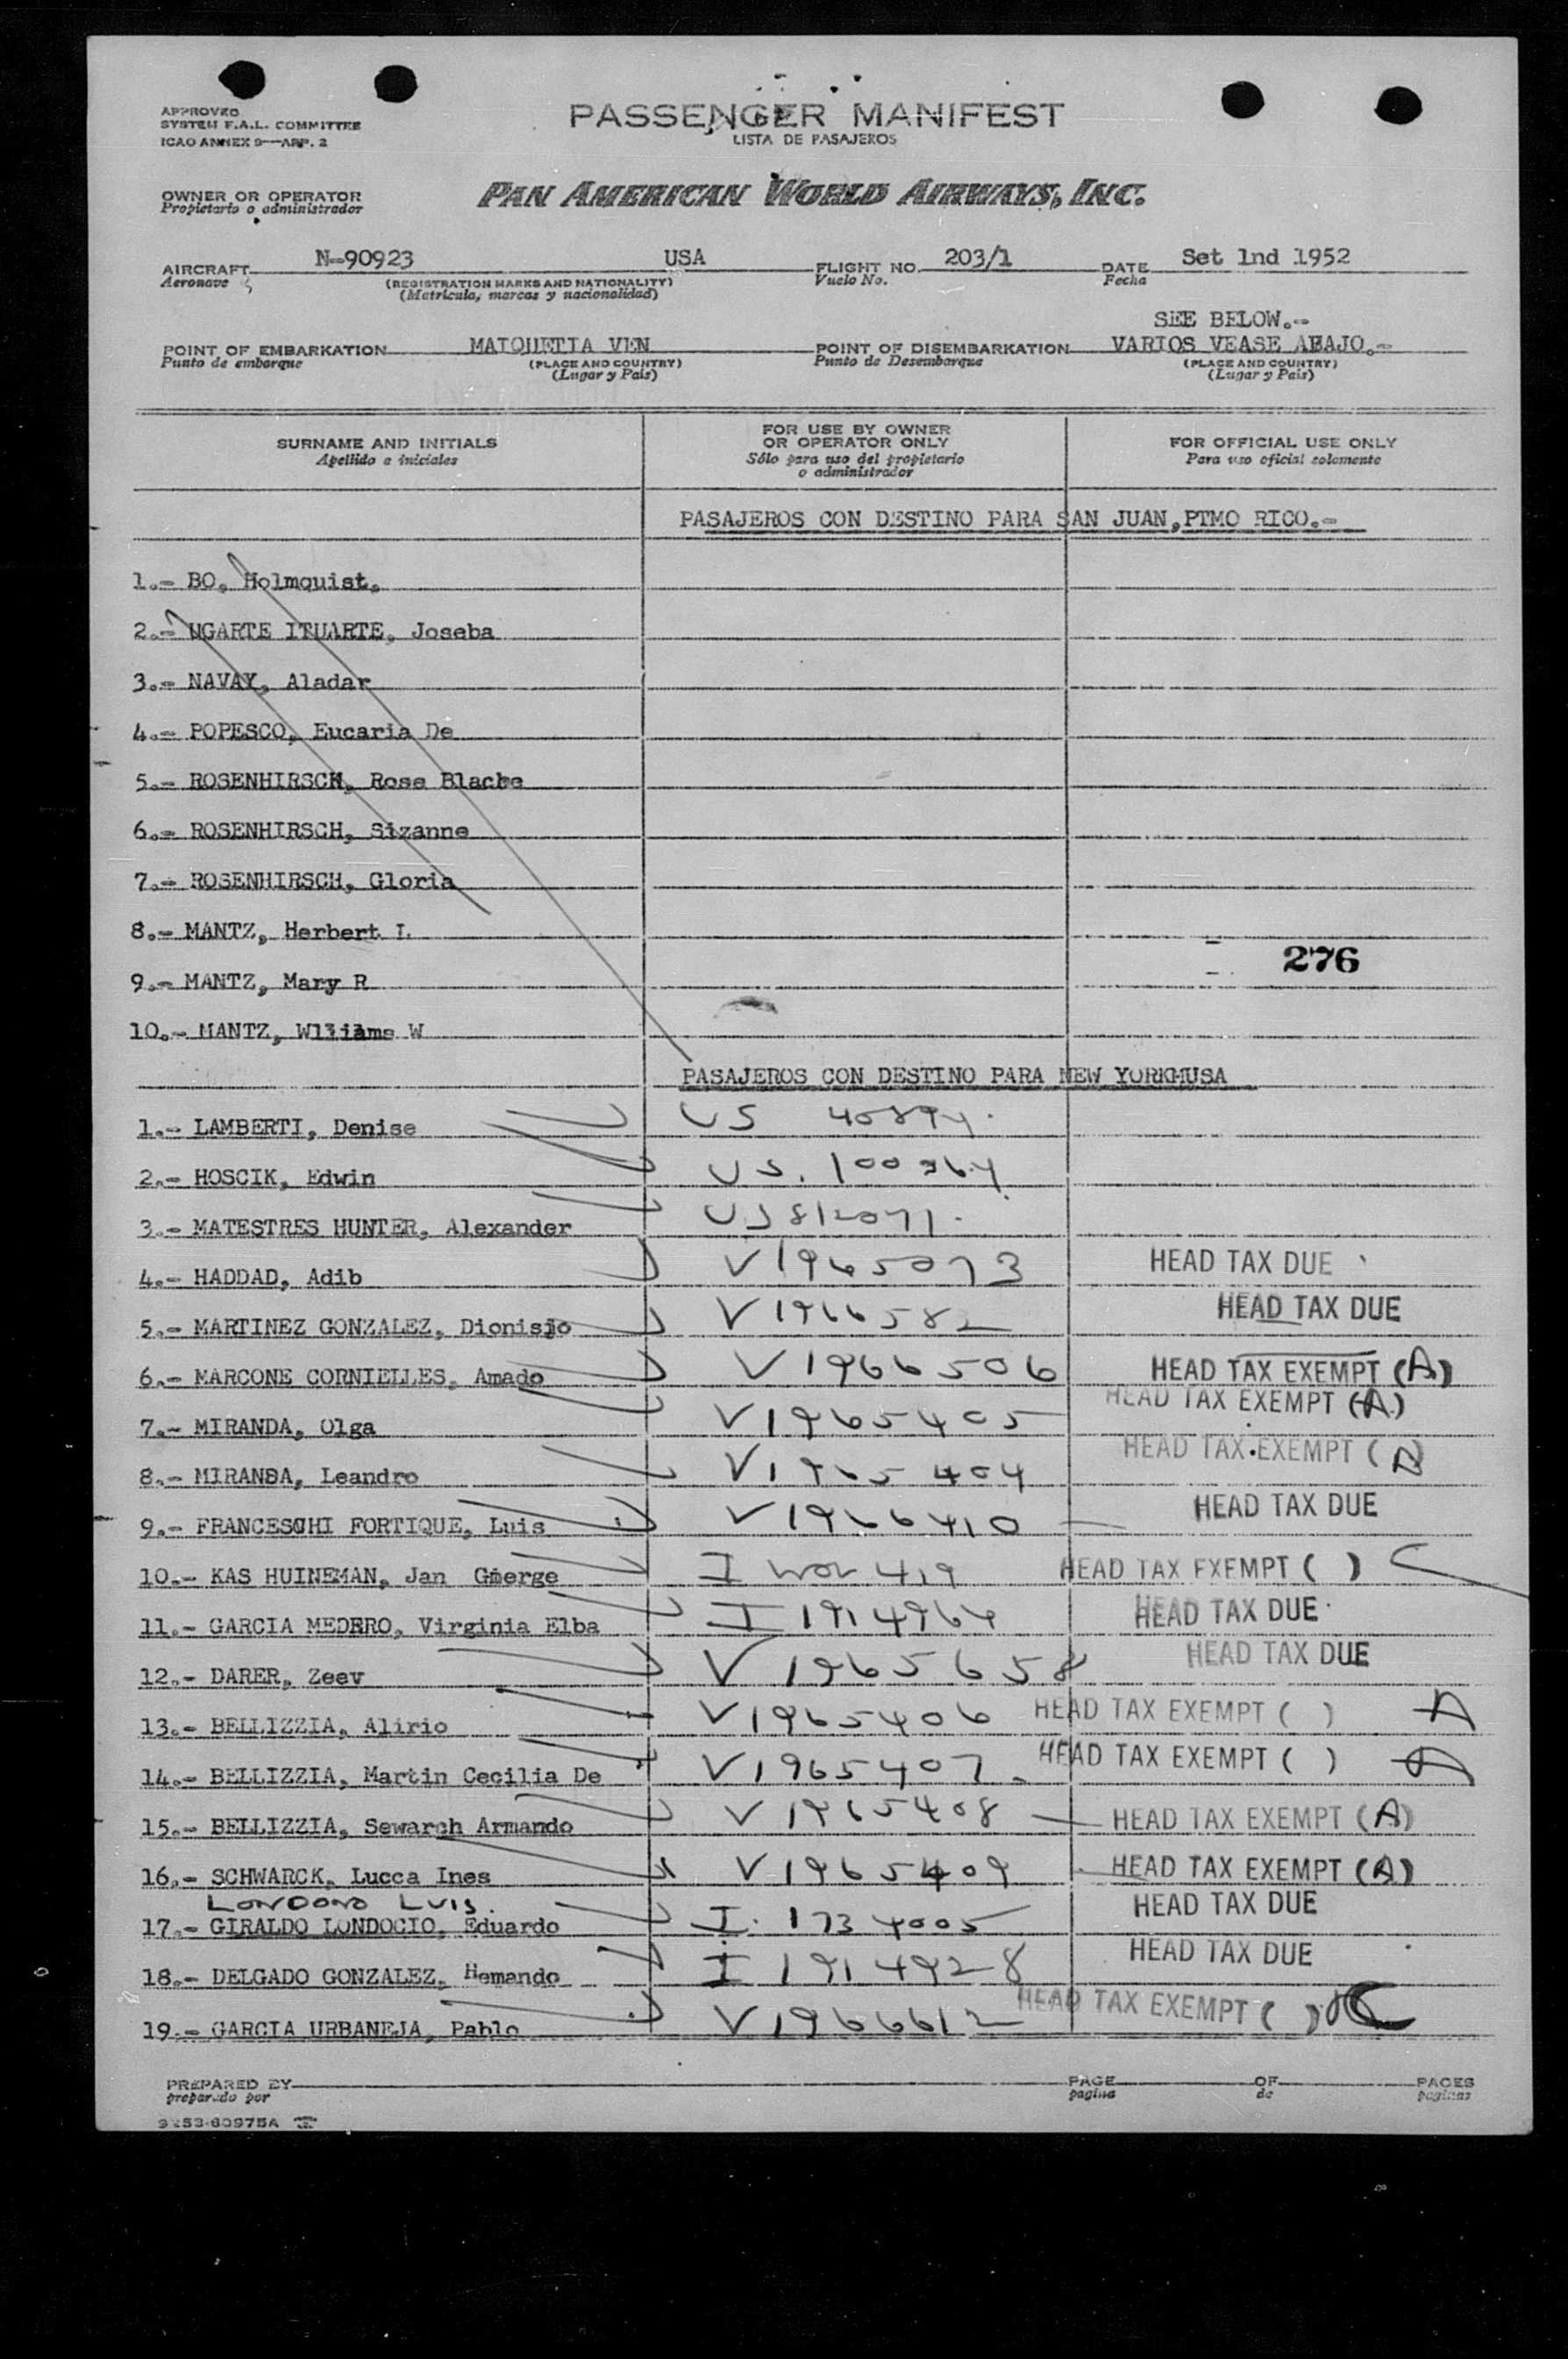 APPROVED
SYSTEM F.A.L. COMMITTEE
ICAO ANNEX 9—APP. 2
PASSENGER MANIFEST
LISTA DE PASAJEROS
OWNER OR OPERATOR
Propietario o administrador
PAN AMERICAN WORLD AIRWAYS, INC.
AIRCRAFT N-90923 USA FLIGHT NO. 203/1 DATE Set 1nd 1952
Aeronave (REGISTRATION MARKS AND NATIONALITY) Vuelo No. Fecha
(Matricula, marcas y nacionalidad)
SEE BELOW.-
POINT OF EMBARKATION MAIQUETIA VEN POINT OF DISEMBARKATION VARIOS VEASE ABAJO.-
Punto de embarque (PLACE AND COUNTRY) Punto de Desembarque (PLACE AND COUNTRY)
(Lugar y País) (Lugar y País)
SURNAME AND INITIALS
Apellido e iniciales
FOR USE BY OWNER
OR OPERATOR ONLY
Sólo para uso del propietario
o administrador
FOR OFFICIAL USE ONLY
Para uso oficial solamente
PASAJEROS CON DESTINO PARA SAN JUAN, PTMO RICO.-
1.- BO, Holmquist,
2.- UGARTE ITUARTE, Joseba
3.- NAVAY, Aladar
4.- POPESCO, Eucaria De
5.- ROSENHIRSCH, Rose Blache
6.- ROSENHIRSCH, Sizanne
7.- ROSENHIRSCH, Gloria
8.- MANTZ, Herbert I.
276
9.- MANTZ, Mary R
10.- MANTZ, Wlliams W
PASAJEROS CON DESTINO PARA NEW YORKMUSA
1.- LAMBERTI, Denise US
2.- HOSCIK, Edwin US.
3.- MATESTRES HUNTER, Alexander
4.- HADDAD, Adib V1965073 HEAD TAX DUE
5.- MARTINEZ GONZALEZ, Dionisio V1966582 HEAD TAX DUE
6.- MARCONE CORNIELLES, Amado V1966506 HEAD TAX EXEMPT (A)
7.- MIRANDA, Olga V1965405 HEAD TAX EXEMPT (A)
8.- MIRANDA, Leandro V1965404 HEAD TAX EXEMPT (A)
9.- FRANCESCHI FORTIQUE, Luis V1966410 HEAD TAX DUE
10.- KAS HUINEMAN, Jan Gmerge I 419 HEAD TAX EXEMPT ( ) C
11.- GARCIA MEDERO, Virginia Elba I 1914964 HEAD TAX DUE
12.- DARER, Zeev V 1965658 HEAD TAX DUE
13.- BELLIZZIA, Alirio V1965406 HEAD TAX EXEMPT ( ) A
14.- BELLIZZIA, Martin Cecilia De V1965407. HEAD TAX EXEMPT ( ) A
15.- BELLIZZIA, Sewarch Armando V1965408 HEAD TAX EXEMPT (A)
16.- SCHWARCK, Lucca Ines V1965409 HEAD TAX EXEMPT (A)
LONDONO LUIS.
17.- GIRALDO LONDOCIO, Eduardo I. 1734005 HEAD TAX DUE
18.- DELGADO GONZALEZ, Hemando I 1914928 HEAD TAX DUE
19.- GARCIA URBANEJA, Pablo V1966612 HEAD TAX EXEMPT ( ) C
PREPARED BY PAGE OF PAGES
preparado por pagina de paginas